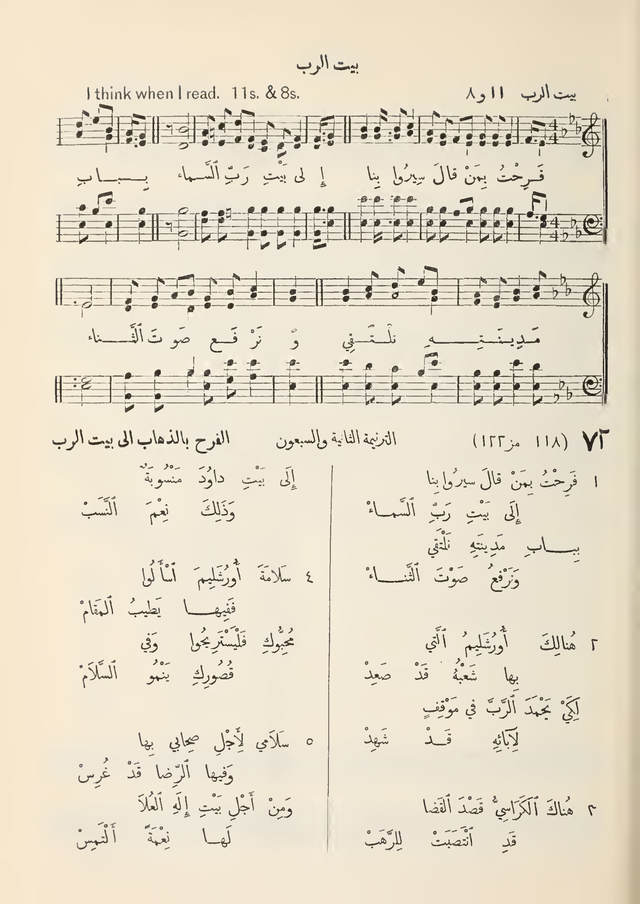 بيت الرب
بيت الرب ١١ و ٨ I think when I read. 11s. & 8s.
فَرِحْتُ بِمَنْ قالَ سِيرُوا بِنا إِلى بَيْتِ رَبِّ السَّماء بـبـاب
مَدِينَتِهِ نَلْتَقِي وَنَرْفَع صَوتَ ٱلثَّناء
٧٢ (١١٨ مز ١٢٢) الترنيمة الثانية والسبعون الفرح بالذهاب الى بيت الرب
١ فَرِحْتُ بِمَنْ قالَ سيرُوا بِنا
إِلَى بَيْتِ رَبِّ السَّماءْ
بِبـابِ مَدِينَتِهِ نَلْتَقي
وَنَرْفعُ صَوْتَ الثَّناءْ
٢ هُنالِكَ أُورُشَلِيمُ ٱلَّتي
بِها شَعْبُهُ قَدْ صَعِدْ
لِكَيْ يَحْمَدَ الرَّبَّ في مَوْقِفٍ
لِآبائِهِ قَدْ شَهِدْ
٣ هُناكَ ٱلْكَراسِيُّ قَصْدَ القَضا
قَدِ ٱنْتَصَبَتْ لِلرَّهَبْ
إِلَى بَيْتِ داوُدَ مَنْسُوبَةٌ
وَذَلِكَ نِعْمَ ٱلنَّسَبْ
٤ سَلامَةَ أُورُشَلِيمَ ٱسْأَلُوا
فَفِيهـا يَطِيبُ ٱلمَقامْ
مُحِبُّوكِ فَلْيَسْتَرِيحُوا وَفي
قُصُورِكِ يَنْمُو السَّلَامْ
٥ سَلامي لِأَجْلِ صِحابي بِها
وَفيها ٱلرِّضا قَدْ غُرِسْ
وَمِنْ أَجْلِ بَيْتِ إِلَهِ ٱلعُلَا
لَهـا نِعْمَةً أَلْتَمِسْ